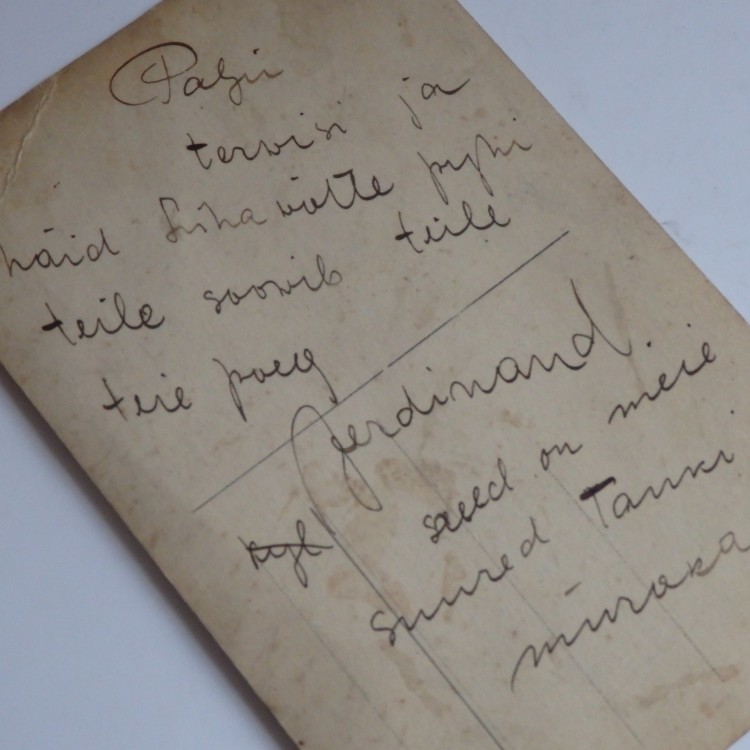 Palju
terwisi ja
häid lihawõtte pyhi
teile soowib teile
teie poeg
Ferdinand.
on meie
suured Tanki
müraka